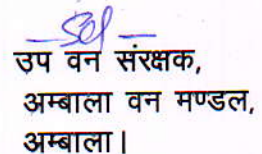 उप वन संरक्षक,
अम्बाला वन मण्डल,
अम्बाला।